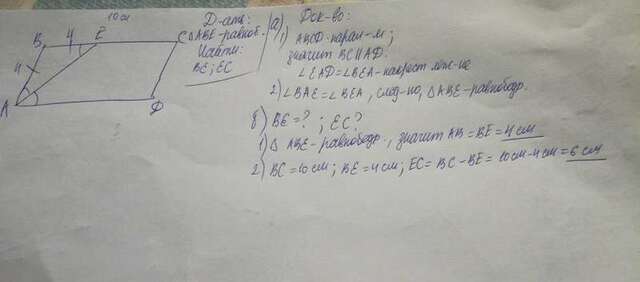 10см
B 4 E C
4
A D
Д-ать:
△ABE-равноб.
Найти:
BE; EC
а) Док-во:
1) ABCD-парал-м;
значит BC∥AD.
∠EAD=∠BEA-накрест леж-ие
2) ∠BAE=∠BEA, след-но, △ABE-равнобедр.
б) BE=? ; EC?
1) △ ABE-равнобедр, значит AB=BE=4см
2) BC=10см; BE=4см; EC=BC-BE=10см-4см=6см